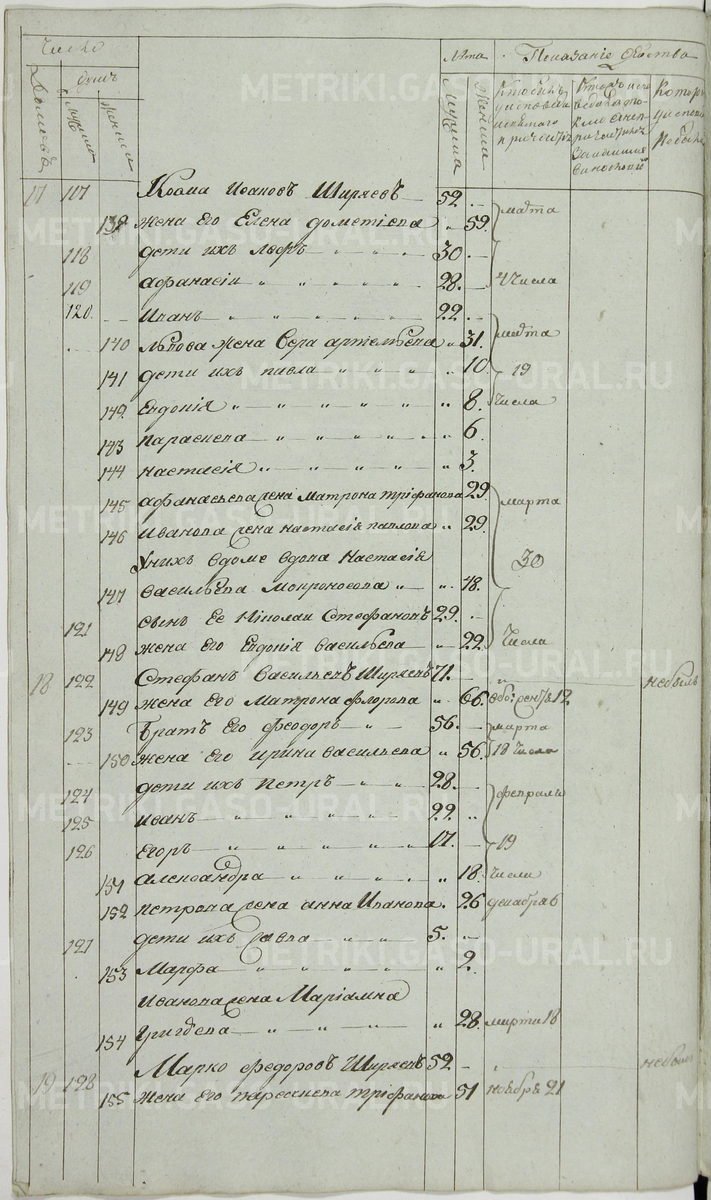 Число
Лѣта
Показанiе бытства
домовъ
душъ
мужеска
женска
Мужеска
Женска
17 117 Козма Ивановъ Ширяевъ 52
139 жена его Елена дометiева 59 марта
118 дети ихъ Лефъ 30
119 афанасiи 28 4 Числа
120 Иванъ 22
140 Львова жена Вера артемьева 31 марта
141 дети ихъ павла 10 19
142 Евдокiя 8 числа
143 параскева 6
144 настасiя 3
145 афанасьева жена Матрона трiфанова 29 марта
146 Иванова жена настасiя павлова 29
Унихъ вдоме вдова Настасiя 30
147 васильева Мокроносова 48
121 сынъ Ее Нiколаи Стефановъ 29
148 жена Его Евдокiя васильева 22 Числа
18 122 Стефанъ васильевъ Ширяевъ 71 небылъ
149 жена его Матрона флорова 66 12
123 братъ Его феодоръ 56 марта
150 жена Его ирина васильева 56 18 числа
124 дети ихъ Петръ 28
125 иванъ 22 февраля
126 Егоръ 17 19
151 александра 18 числа
152 петрова жена анна Иванова 26 декабря 6
127 дети ихъ савва 5
153 Марфа 2
Иванова жена Марiамна
154 28 марта 18
19 128 Марко федоровъ Ширяевъ 52 небылъ
155 жена его параскева трiфанова 51 ноября 21
METRIKI.GASO-URAL.RU